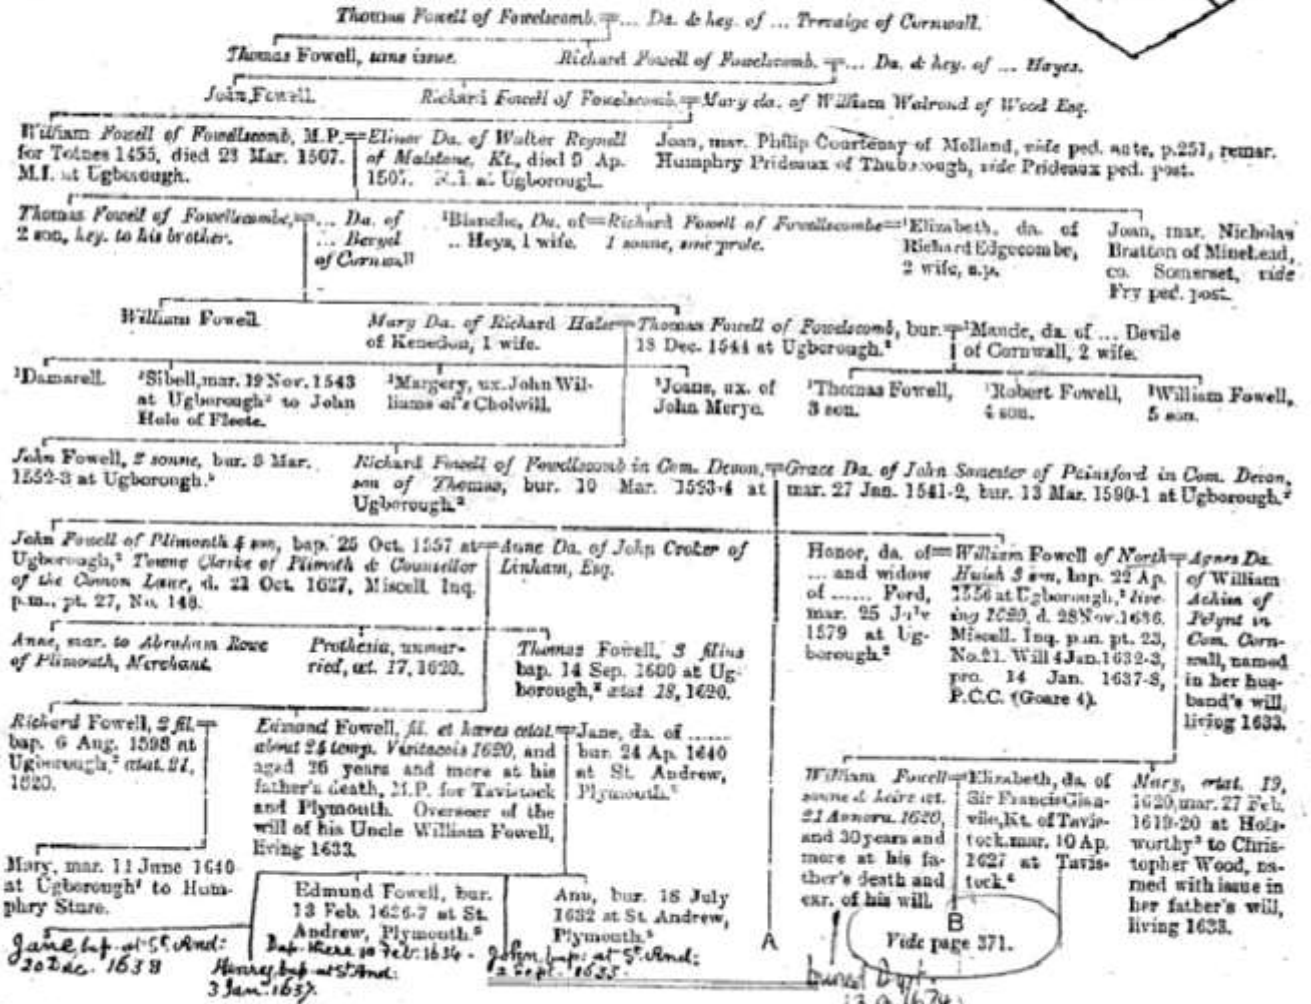 Thomas Fowell of Fowelscomb. = ... Da. & hey. of ... Trevaige of Cornwall.
Thomas Fowell, sans issue.
Richard Fowell of Fowelscomb. = ... Da. & hey. of ... Hayes.
John Fowell.
Richard Fowell of Fowelscomb. = Mary da. of William Walrond of Wood Esq.
William Fowell of Fowellscomb, M.P.
for Totnes 1455, died 23 Mar. 1507.
M.I. at Ugborough.
= Elinor Da. of Walter Reynell
of Malstone, Kt., died 9 Ap.
1507. M.I. at Ugborough.
Joan, mar. Philip Courtenay of Molland, vide ped. ante, p.251, remar.
Humphry Prideaux of Thuborough, vide Prideaux ped. post.
Thomas Fowell of Fowellscombe,
2 son, hey. to his brother.
= ... Da. of
... Bevyel
of Cornwall
¹Blanche, Da. of
.. Heys, 1 wife.
= Richard Fowell of Fowellscombe
1 sonne, sine prole.
= ¹Elizabeth, da. of
Richard Edgecombe,
2 wife, s.p.
Joan, mar. Nicholas
Bratton of Minehead,
co. Somerset, vide
Fry ped. post.
William Fowell.
Mary Da. of Richard Halse
of Kenedon, 1 wife.
= Thomas Fowell of Fowelscomb, bur.
18 Dec. 1544 at Ugborough.²
= ¹Maude, da. of ... Devile
of Cornwall, 2 wife.
¹Damarell.
¹Sibell, mar. 19 Nov. 1543
at Ugborough² to John
Hole of Fleete.
¹Margery, ux. John Wil-
liams al's Cholwill.
¹Joane, ux. of
John Merye.
¹Thomas Fowell,
3 son.
¹Robert Fowell,
4 son.
¹William Fowell,
5 son.
John Fowell, 2 sonne, bur. 8 Mar.
1552-3 at Ugborough.²
Richard Fowell of Fowellscomb in Com. Devon,
son of Thomas, bur. 10 Mar. 1593-4 at
Ugborough.²
= Grace Da. of John Somester of Painsford in Com. Devon,
mar. 27 Jan. 1541-2, bur. 13 Mar. 1590-1 at Ugborough.²
John Fowell of Plimouth 4 son, bap. 25 Oct. 1557 at
Ugborough,² Towne Clarke of Plimoth & Counsellor
of the Comon Lawe, d. 21 Oct. 1627, Miscell. Inq.
p.m., pt. 27, No. 148.
= Anne Da. of John Croker of
Linham, Esq.
Honor, da. of
... and widow
of ...... Ford,
mar. 25 July
1579 at Ug-
borough.²
= William Fowell of North
Huish 3 son, bap. 22 Ap.
1556 at Ugborough,² live-
ing 1620, d. 28 Nov. 1636.
Miscell. Inq. p.m. pt. 23,
No. 21. Will 4 Jan. 1632-3,
pro. 14 Jan. 1637-8,
P.C.C. (Goare 4).
= Agnes Da.
of William
Achim of
Pelynt in
Com. Corn-
wall, named
in her hus-
band's will,
living 1633.
Anne, mar. to Abraham Rowe
of Plimouth, Merchant.
Prothesia, unmar-
ried, æt. 17, 1620.
Thomas Fowell, 3 filius
bap. 14 Sep. 1600 at Ug-
borough,² ætat 18, 1620.
Richard Fowell, 2 fil.
bap. 6 Aug. 1598 at
Ugborough,² ætat. 21,
1620.
Edmond Fowell, fil. et hæres ætat.
about 24 temp. Visitacois 1620, and
aged 26 years and more at his
father's death, M.P. for Tavistock
and Plymouth. Overseer of the
will of his Uncle William Fowell,
living 1633.
= Jane, da. of ......
bur. 24 Ap. 1640
at St. Andrew,
Plymouth.
William Fowell
sonne & heire æt.
21 Annoru. 1620,
and 30 years and
more at his fa-
ther's death and
exr. of his will.
= Elizabeth, da. of
Sir Francis Glan-
vile, Kt. of Tavis-
tock. mar. 10 Ap.
1627 at Tavis-
tock.
Mary, ætat. 19,
1620, mar. 27 Feb.
1619-20 at Hols-
worthy to Chris-
topher Wood, na-
med with issue in
her father's will,
living 1633.
Mary, mar. 11 June 1640
at Ugborough to Hum-
phry Sture.
Edmund Fowell, bur.
13 Feb. 1636-7 at St.
Andrew, Plymouth.
Bap. there 10 Feb: 1634.
Ann, bur. 18 July
1632 at St. Andrew,
Plymouth.
A
B
Vide page 371.
Jane bap. at St. And:
20 Dec. 1638
Henry bap at St And:
3 Jan. 1637.
John bap: at St. And:
2 Sept. 1635.
buried